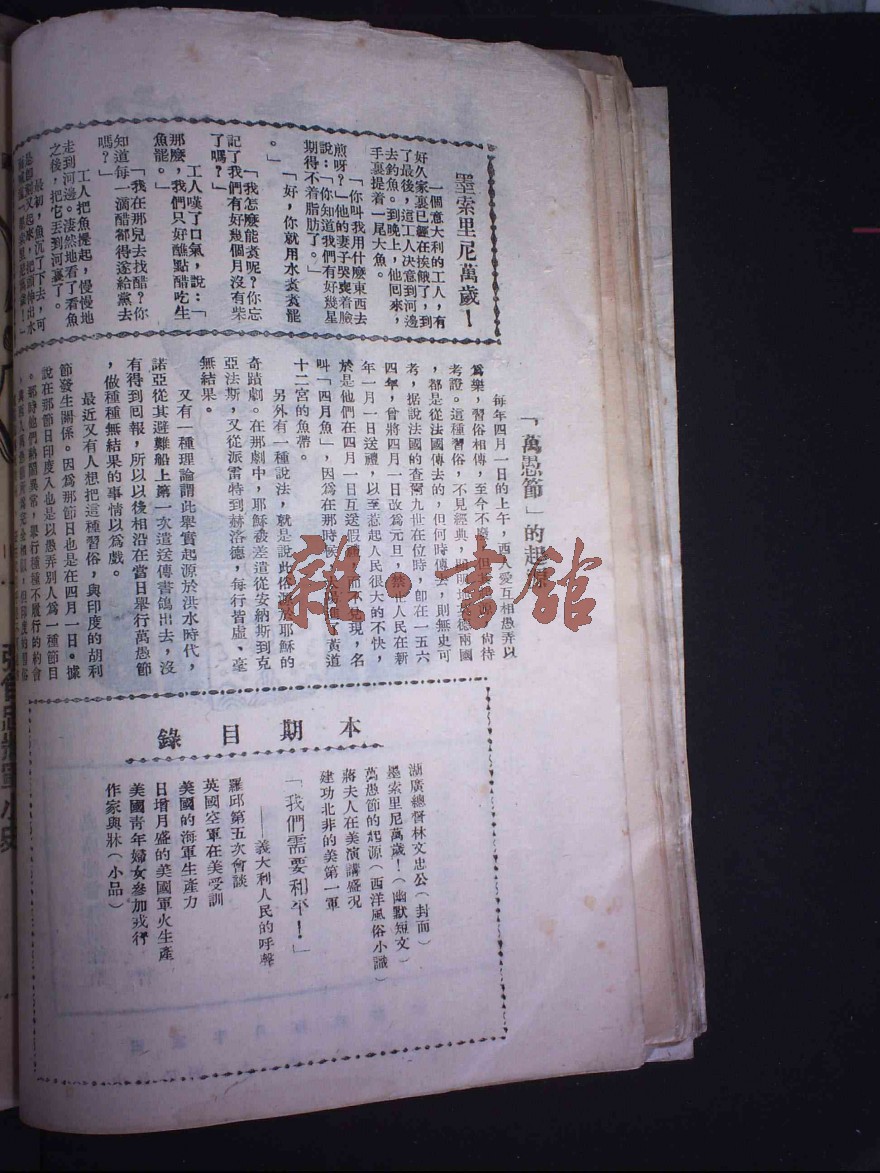 墨索里尼萬歲！
一個意大利的工人，有
好久家裏已經在挨餓了，到
了最後，這工人決意到河邊
去釣魚。到晚上，他回來，
手裏提着一尾大魚。
「你叫我用什麼東西去
煎呀？」他的妻子哭喪着臉
說：「你知道我們有好幾星
期得不着脂肪了。」
「好，你就用水煑煑罷
。」
「我怎麼能煑呢？你忘
記了我們有好幾個月沒有柴
了嗎？」
工人嘆了口氣，說：「
那麼，我們只好蘸點醋吃生
魚罷。」
「我在那兒去找醋？你
知道每一滴醋都得送給黨去
嗎？」
工人把魚攪起，慢慢地
走到河邊。淒然地看了看魚
之後，把它丟到河裏了。
最初，魚沉了下去，可
「萬愚節」的起源
每年四月一日的上午，西人愛互相愚弄以
爲樂，習俗相傳，至今不廢，但
尚待
考證。這種習俗，不見經典，
德兩國
，都是從法國傳去的，但何時傳去，則無史可
考，据說法國的查爾九世在位時，卽在一五六
四年，曾將四月一日改爲元旦，禁止人民在新
年一月一日送禮，以至惹起人民很大的不快，
於是他們在四月一日互送假
而不兌現，名
叫「四月魚」，因爲在那時候
黃道
十二宮的魚舊。
另外有一種說法，就是說此俗源於耶穌的
奇蹟劇。在那劇中，耶穌被差遣從安納斯到克
亞法斯，又從派雷特到赫洛德，每行皆虛，毫
無結果。
又有一種理論謂此舉實起源於洪水時代，
諾亞從其避難船上第一次遣送傳書鴿出去，沒
有得到囘報，所以以後相沿在當日舉行萬愚節
，做種種無結果的事情以爲戲。
最近又有人想把這種習俗，與印度的胡利
節發生關係。因爲那節日也是在四月一日。據
說在那節日印度入也是以愚弄別人爲一種節目
。那時他們熱鬧異常，舉行種種不履行的約會
本期目錄
湖廣總督林文忠公（封面）
墨索里尼萬歲！（幽默短文）
萬愚節的起源（西洋風俗小識）
蔣夫人在美演講盛況
建功北非的美第一軍
「我們需要和平！」
——義大利人民的呼聲
羅邱第五次會談
英國空軍在美受訓
美國的海軍生產力
日增月盛的美國軍火生產
美國靑年婦女參加戎行
作家與牀（小品）
雜·書館